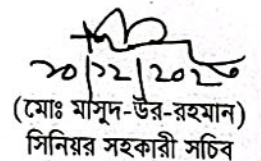 ২০/১২/২০২৩
(মোঃ মাসুদ-উর-রহমান)
সিনিয়র সহকারী সচিব